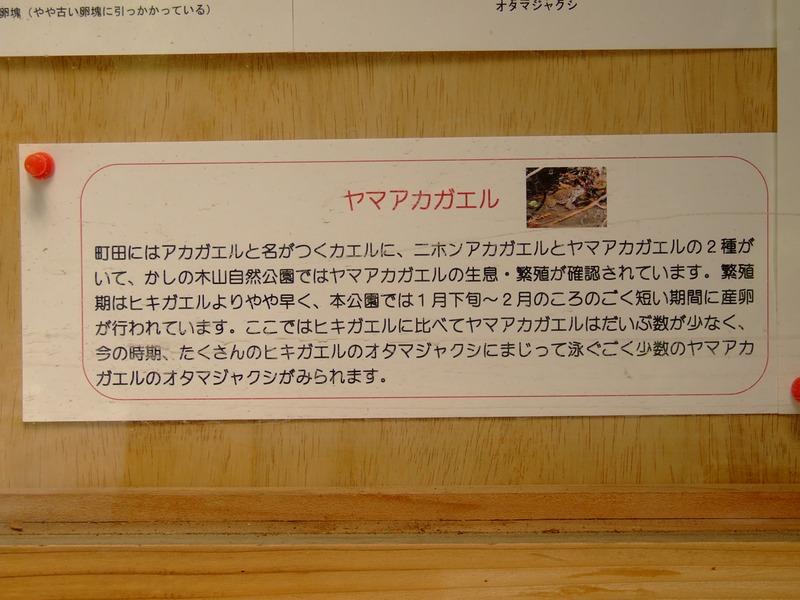 卵塊（やや古い卵塊に引っかかっている）
オタマジャクシ
ヤマアカガエル
町田にはアカガエルと名がつくカエルに、ニホンアカガエルとヤマアカガエルの２種が
いて、かしの木山自然公園ではヤマアカガエルの生息・繁殖が確認されています。繁殖
期はヒキガエルよりやや早く、本公園では１月下旬～２月のころのごく短い期間に産卵
が行われています。ここではヒキガエルに比べてヤマアカガエルはだいぶ数が少なく、
今の時期、たくさんのヒキガエルのオタマジャクシにまじって泳ぐごく少数のヤマアカ
ガエルのオタマジャクシがみられます。